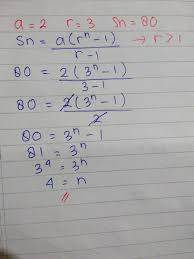 a = 2 r = 3 Sn = 80
Sn = a(rⁿ-1) / r-1 → r > 1
80 = 2(3ⁿ-1) / 3-1
80 = 2(3ⁿ-1) / 2
80 = 3ⁿ-1
81 = 3ⁿ
3⁴ = 3ⁿ
4 = n
//